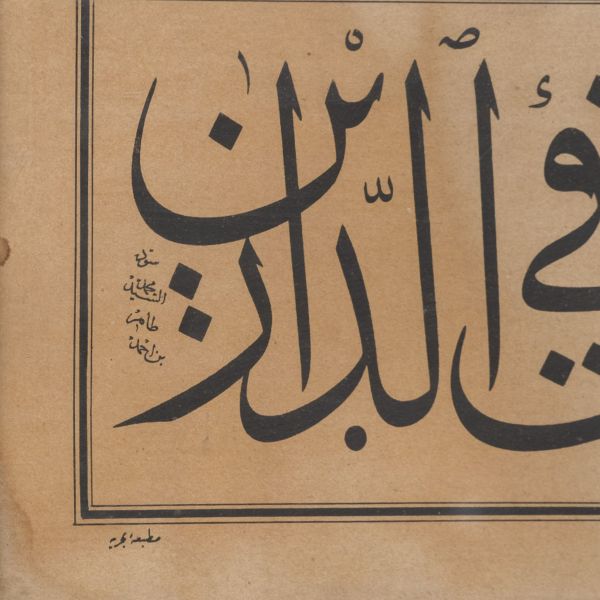 في الدَّارَيْنِ
سوده
السيد محمد
طاهر
بن احمد
مطبعهٔ بحريه